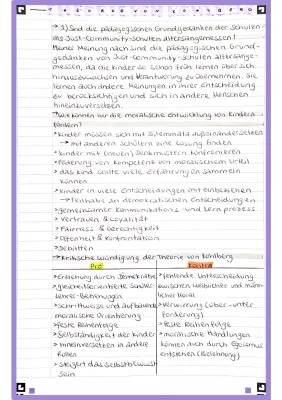 → 1) Sind die pädagogischen Grundgedanken der Schulen
als Just-Community-Schulen altersangemessen?
Meiner Meinung nach sind die pädagogischen Grund-
gedanken von Just-Community-Schulen altersange-
messen, da die Kinder so schon früh lernen über sich
hinauszuwachsen und Verantwortung zu übernehmen. Sie
lernen auch andere Meinungen in ihrer Entscheidung
zu berücksichtigen und sich in andere Menschen
hineinzuversetzen.
→ Wie können wir die moralische Entwicklung von Kindern
fördern?
> Kinder müssen sich mit Dilemmata außeinandersetzen
→ mit anderen Schülern eine Lösung finden
> Kinder mit (neuen) Denkmustern konfrontieren
> Förderung von Kompetenz von moralischem Urteil
> das Kind sollte viele Erfahrungen sammeln
können
> Kinder in viele Entscheidungen mit einbeziehen
→ Teilhabe an demokratischen Entscheidungen
> gemeinsamer Kommunikations- und Lernprozess
> Vertrauen & Loyalität
> Fairness & Gerechtigkeit
> Offenheit & Konfrontation
> Debatten
→ Kritische Würdigung der Theorie von Kohlberg
Pro
> Erziehung durch Demokratie
> gleichberechtigte Schüler-
Lehrer-Beziehungen
> schrittweise und aufbauende
moralische Orientierung
> feste Reihenfolge
> Selbständigkeit der Kinder
> Hineinversetzen in andere
Rollen
> steigert das Selbstbewusst-
sein
Kontra
> fehlende Unterscheidung
zwischen weiblicher und männ-
licher Moral
> Verwirrung (über-unter
forderung)
> feste Reihenfolge
> moralische Handlungen
können auch durch Egoismus
entstehen (Belohnung)